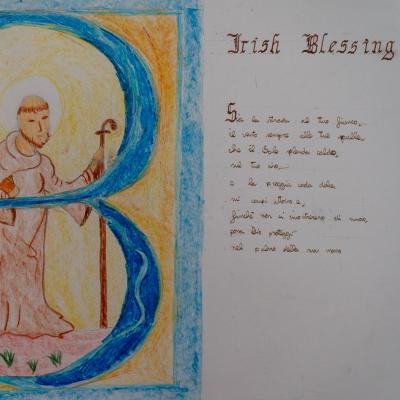 Irish Blessing
Sia la strada al tuo fianco,
il vento sempre alle tue spalle,
che il Sole splenda caldo
sul tuo viso,
e la pioggia cada dolce
nei campi attorno e,
finché non ci incontriamo di nuovo,
possa Dio
nel palmo della sua mano